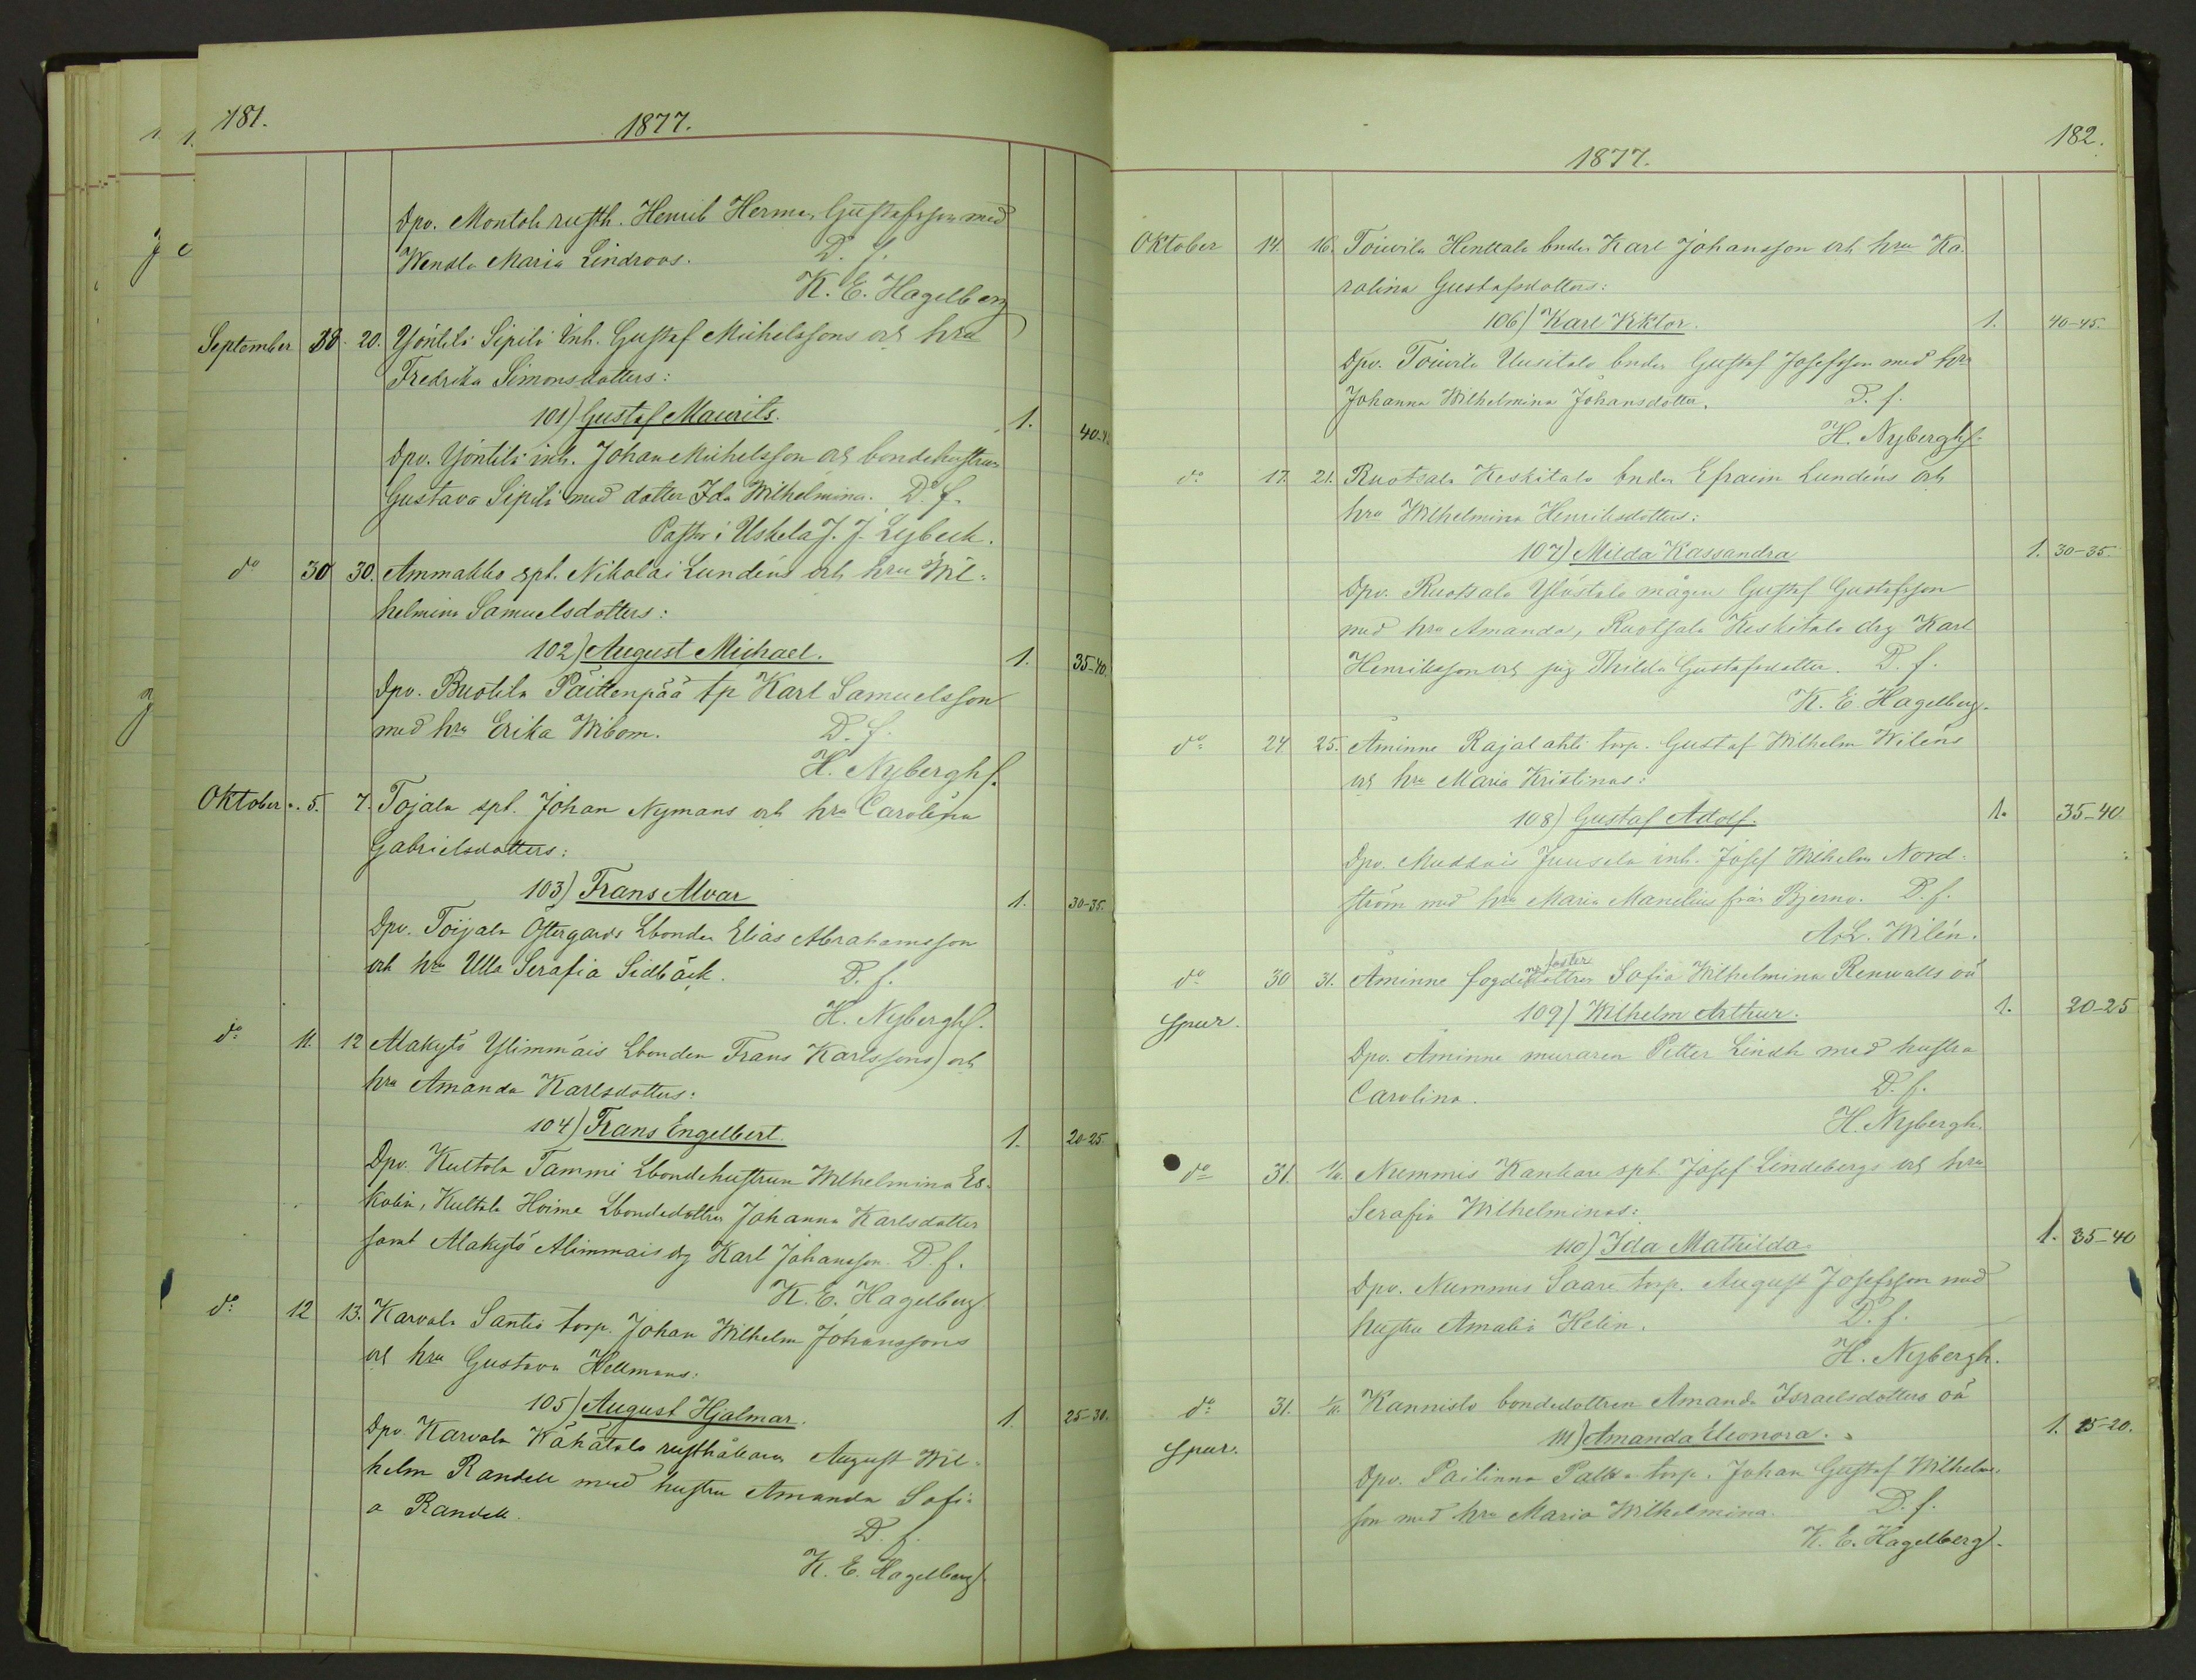 181.
1877.
Dpv. Montola rusth. Henrik Herman Gustafsson med
Wendla Maria Lindroos. D. f.
K. E. Hagelberg
September 18. 20. Yöntilä Sipilä inh. Gustaf Michelssons och hru
Fredrika Simonsdotters:
101) Gustaf Maurits. 1. 40-45
Dpv. Yöntilä inh. Johan Michelsson och bondehustrun
Gustava Sipilä med dotter Ida Wilhelmina. D. f.
Pastor i Uskela J. J. Lybeck.
do 30 30. Ammakko spt. Nikolai Lundéns och hru Wil-
helmina Samuelsdotters:
102) August Michael. 1. 35-40
Dpv. Buotila Päittenpää tp Karl Samuelsson
med hru Erika Wibom. D. f.
H. Nybergh.
Oktober 5. 7. Tojala spt. Johan Nymans och hru Carolina
Gabrielsdotters:
103) Frans Alvar 1. 30-35.
Dpv. Toijala Östergårds Lbonden Elias Abrahamsson
och hru Ulla Serafia Sidbäck. D. f.
H. Nybergh.
do 11. 12 Alakytö Ylimmäis Lbonden Frans Karlssons och
hru Amanda Karlsdotters:
104) Frans Engelbert. 1. 20-25
Dpv. Kultola Tammi Lbondehustrun Wilhelmina Es-
kolin, Kultala Hoime Lbondedottren Johanna Karlsdotter
samt Alakytö Alimmais dg Karl Johansson. D. f.
K. E. Hagelberg
do 12 13. Karvala Santio torp. Johan Wilhelm Johanssons
och hru Gustava Hellmans:
105) August Hjalmar. 1. 25-30.
Dpv. Karvala Kähätalo rusthållaren August Wil-
helm Randell med hustru Amanda Sofi-
a Randell. D. f.
K. E. Hagelberg
182.
1877.
Oktober 14. 16. Toivila Henttala bnden Karl Johansson och hru Ka-
rolina Gustafsdotters:
106) Karl Viktor. 1. 40-45.
Dpv. Toivila Uusitalo bnden Gustaf Josefsson med hru
Johanna Wilhelmina Johansdotter. D. f.
H. Nybergh.
do 17. 21. Ruotsala Keskitalo bnden Efraim Lundéns och
hru Wilhelmina Henriksdotters:
107) Milda Kassandra 1. 30-35.
Dpv. Ruotsala Ylöstalo mågen Gustaf Gustafsson
med hru Amanda, Ruotsala Keskitalo drg Karl
Henriksson och pig Thilda Gustafsdotter. D. f.
K. E. Hagelberg.
do 24 25. Åminne Rajalahti torp. Gustaf Wilhelm Wiléns
och hru Maria Kristinas:
108) Gustaf Adolf. 1. 35-40
Dpv. Muddais Juusela inh. Josef Wilhelm Nord-
ström med hru Maria Manelius från Bjerno. D. f.
A. L. Wilén.
do 30 31. Åminne fogde foster dottren Sofia Wilhelmina Renwalls oä
spur. 109) Wilhelm Arthur. 1. 20-25
Dpv. Åminne muraren Petter Lindh med hustru
Carolina. D. f.
H. Nybergh.
do 31. 1/11. Nummis Kankare spt. Josef Lindebergs och hru
Serafia Wilhelminas:
110) Ida Mathilda. 1. 35-40
Dpv. Nummis Saari torp. August Josefsson med
hustru Amalia Helin. D. f.
H. Nybergh.
do 31. 1/11. Kannisto bondedottren Amanda Israelsdotters oä
spur. 111) Amanda Eleonora. 1. 15-20.
Dpv. Pailinna Palla torp. Johan Gustaf Wilhelms-
son med hru Maria Wilhelmina. D. f.
K. E. Hagelberg.